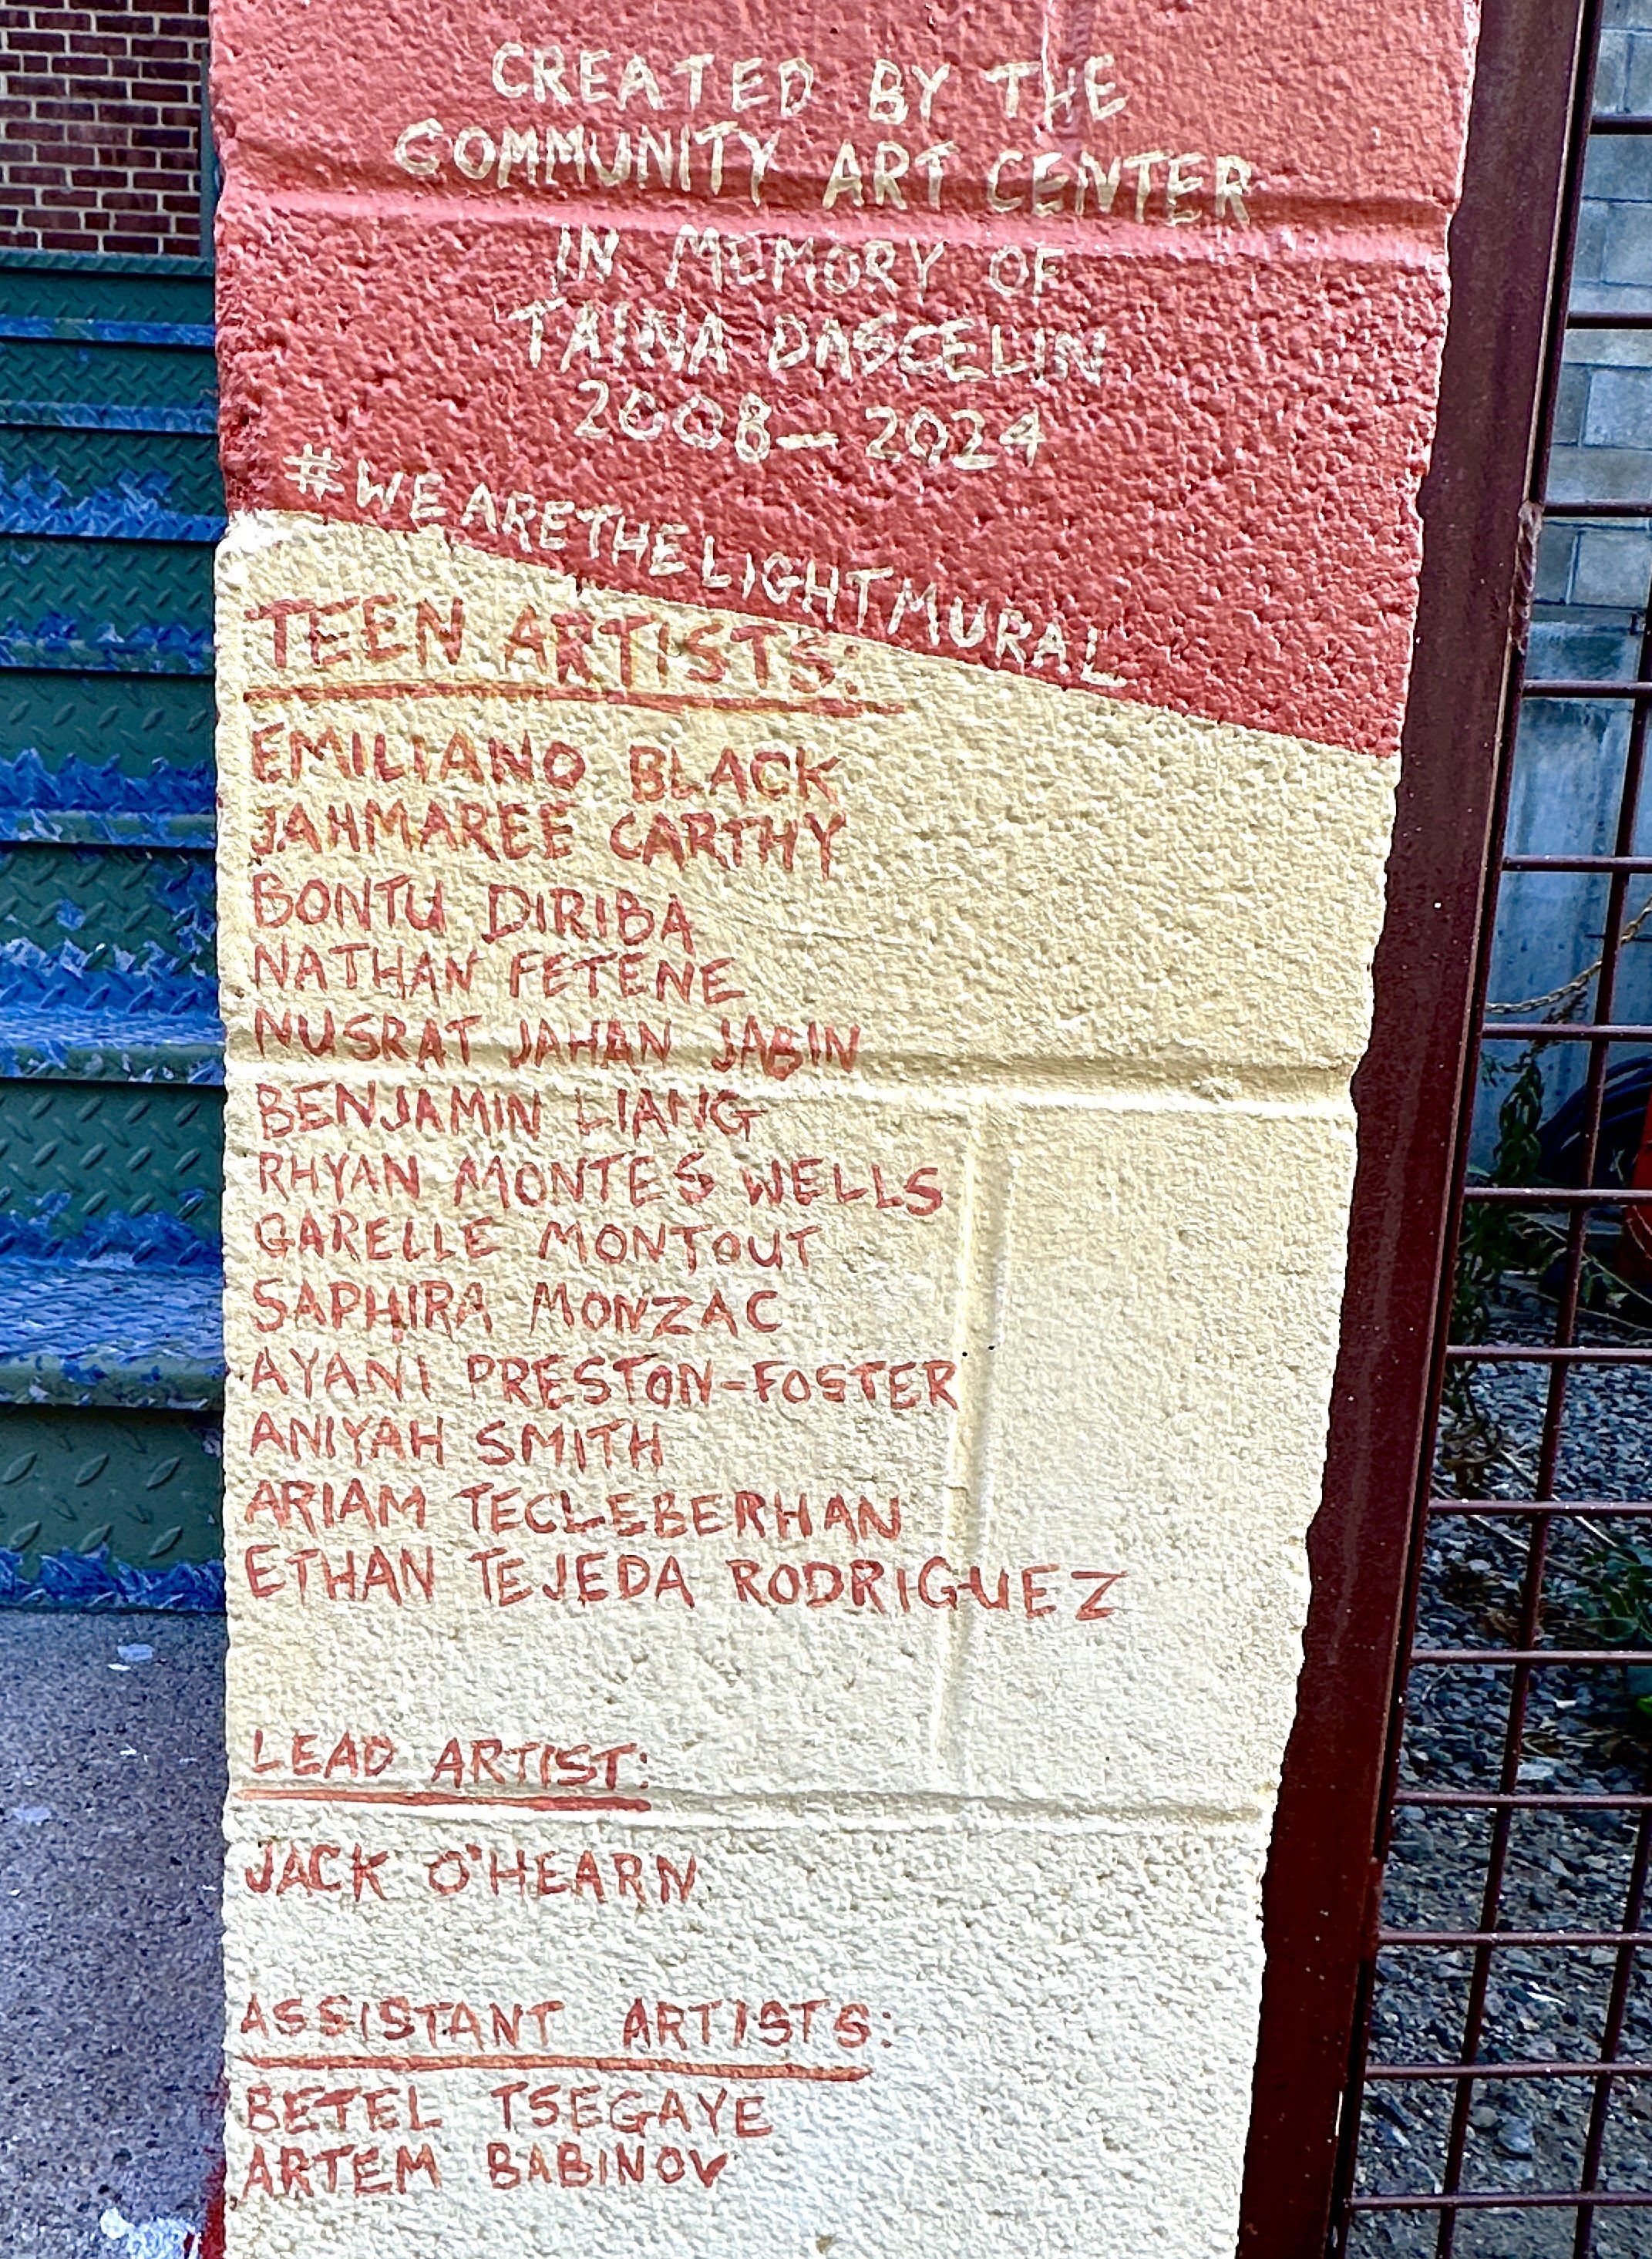 CREATED BY THE
COMMUNITY ART CENTER
IN MEMORY OF
TAINA DASCELIN
2008—2024
#WEARETHELIGHTMURAL
TEEN ARTISTS:
EMILIANO BLACK
JAHMAREE CARTHY
BONTU DIRIBA
NATHAN FETENE
NUSRAT JAHAN JABIN
BENJAMIN LIANG
RHYAN MONTES WELLS
GARELLE MONTOUT
SAPHIRA MONZAC
AYANI PRESTON-FOSTER
ANIYAH SMITH
ARIAM TECLEBERHAN
ETHAN TEJEDA RODRIGUEZ
LEAD ARTIST:
JACK O'HEARN
ASSISTANT ARTISTS:
BETEL TSEGAYE
ARTEM BABINOV